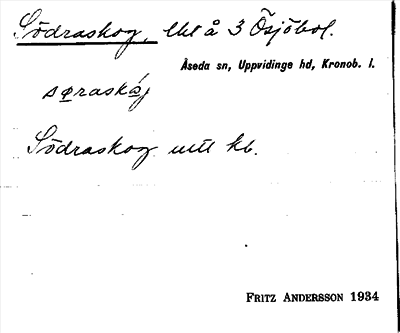 Södraskog, lht å 3 Ösjöbol.
Åseda sn, Uppvidinge hd, Kronob. l.
søraskóg
Södraskog utt kb.
FRITZ ANDERSSON 1934